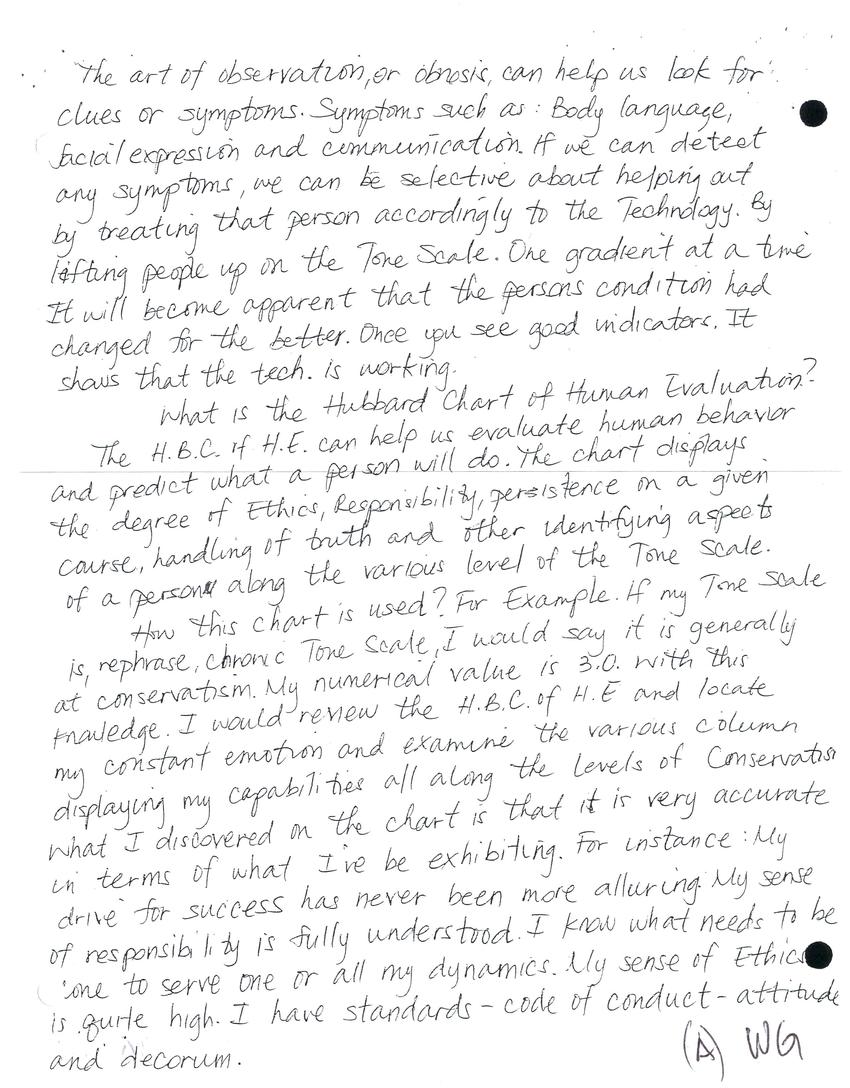 The art of observation, or obnosis, can help us look for
clues or symptoms. Symptoms such as: Body language,
facial expression and communication. If we can detect
any symptoms, we can be selective about helping out
by treating that person accordingly to the Technology. By
lifting people up on the Tone Scale. One gradient at a time
It will become apparent that the persons condition had
changed for the better. Once you see good indicators. It
shows that the tech. is working.
What is the Hubbard Chart of Human Evaluation?
The H.B.C. if H.E. can help us evaluate human behavior
and predict what a person will do. The chart displays
the degree of Ethics, Responsibility, persistence on a given
course, handling of truth and other identifying aspects
of a person along the various level of the Tone Scale.
How this chart is used? For Example. If my Tone Scale
is, rephrase, chronic Tone Scale, I would say it is generally
at conservatism. My numerical value is 3.0. With this
knowledge. I would review the H.B.C. of H.E and locate
my constant emotion and examine the various column
displaying my capabilities all along the levels of Conservatism
What I discovered on the chart is that it is very accurate
in terms of what I've be exhibiting. For instance: My
drive for success has never been more alluring. My sense
of responsibility is fully understood. I know what needs to be
one to serve one or all my dynamics. My sense of Ethics
is quite high. I have standards - code of conduct - attitude
and decorum.
(A) WG